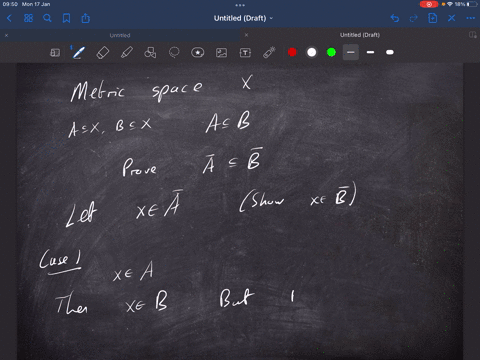 09:50 Mon 17 Jan
18%
Untitled (Draft)
Untitled
Untitled (Draft)
Metric space X
A ⊆ X, B ⊆ X A ⊆ B
Prove A̅ ⊆ B̅
Let x ∈ A̅ (Show x ∈ B̅)
Case 1
x ∈ A
Then x ∈ B But